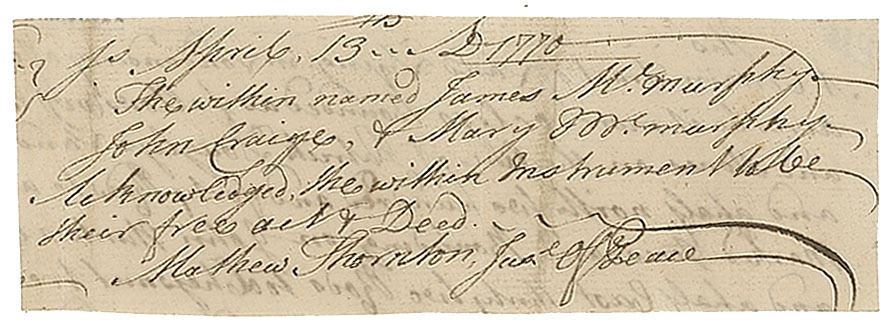 ss. April, 13... AD 1770
The within named James Mc.murphy
John Craige, & Mary Mc.murphy
Acknowledged, the within Instrument to be
their free act & Deed.
Mathew Thornton, Juse. Of Peace